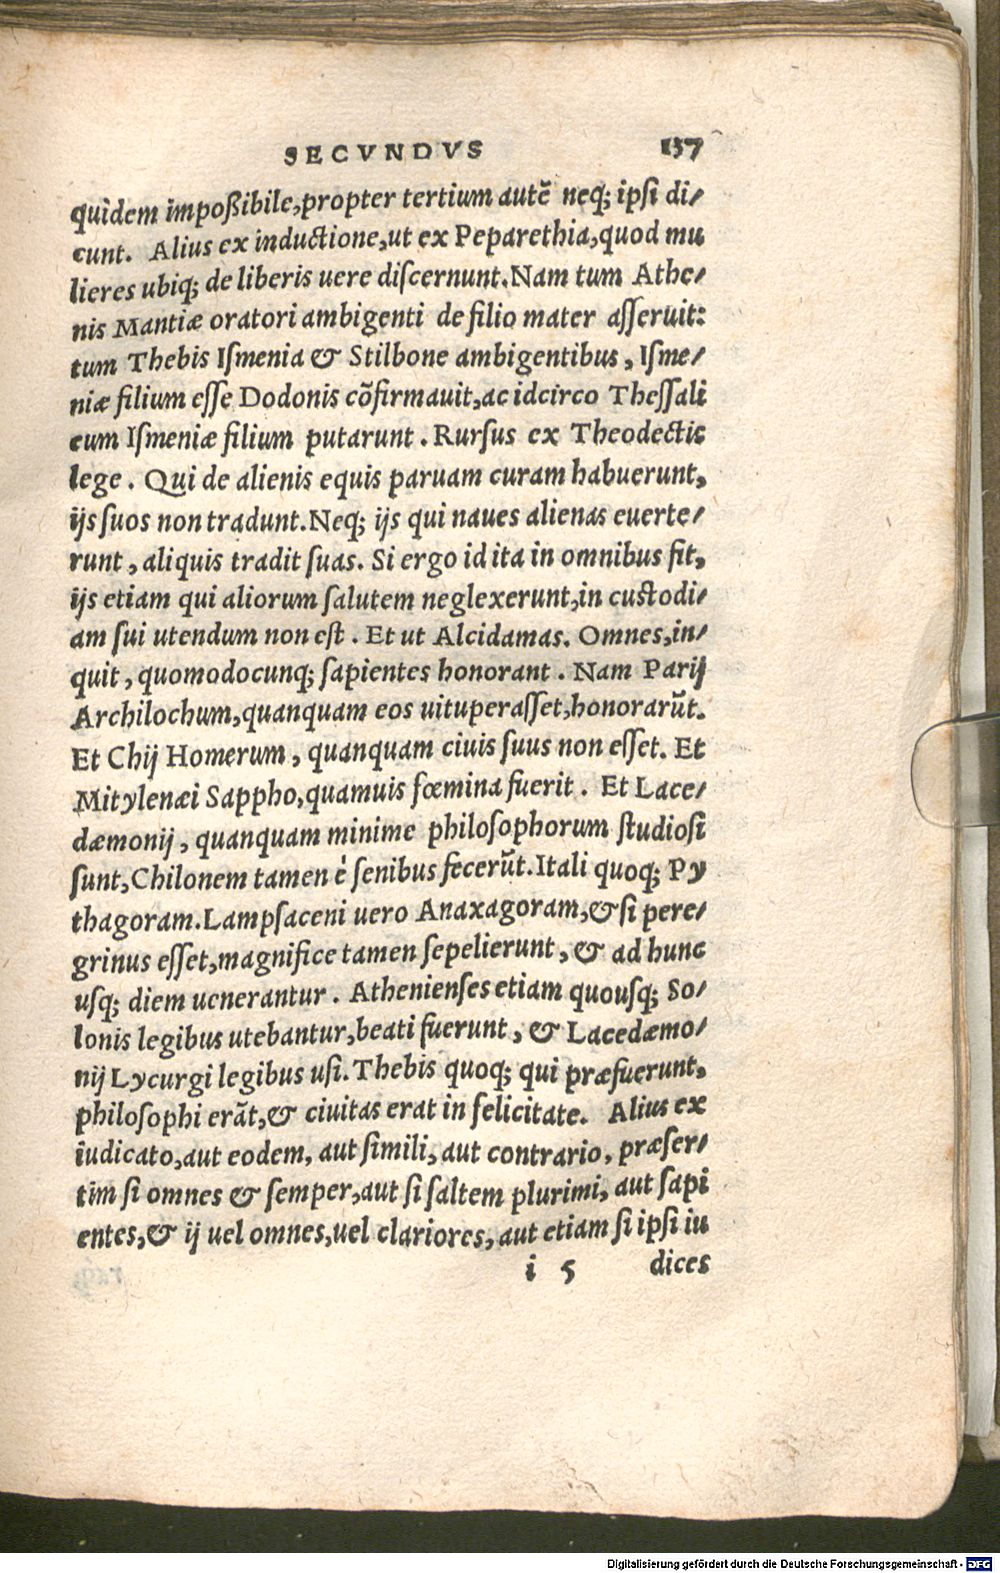 SECVNDVS 137
quidem impoßibile, propter tertium autē neq; ipsi di/
cunt. Alius ex inductione, ut ex Peparethia, quod mu
lieres ubiq; de liberis uere discernunt. Nam tum Athe/
nis Mantiæ oratori ambigenti de filio mater asseruit:
tum Thebis Ismenia & Stilbone ambigentibus, Isme/
niæ filium esse Dodonis cōfirmauit, ac idcirco Thessali
eum Ismeniæ filium putarunt. Rursus ex Theodectis
lege. Qui de alienis equis paruam curam habuerunt,
ijs suos non tradunt. Neq; ijs qui naues alienas euerte/
runt, aliquis tradit suas. Si ergo id ita in omnibus fit,
ijs etiam qui aliorum salutem neglexerunt, in custodi/
am sui utendum non est. Et ut Alcidamas. Omnes, in/
quit, quomodocunq; sapientes honorant. Nam Parij
Archilochum, quanquam eos uituperasset, honorarūt.
Et Chij Homerum, quanquam ciuis suus non esset. Et
Mitylenæi Sappho, quamuis fœmina fuerit. Et Lace/
dæmonij, quanquam minime philosophorum studiosi
sunt, Chilonem tamen è senibus fecerūt. Itali quoq; Py
thagoram. Lampsaceni uero Anaxagoram, & si pere/
grinus esset, magnifice tamen sepelierunt, & ad hunc
usq; diem uenerantur. Athenienses etiam quousq; So/
lonis legibus utebantur, beati fuerunt, & Lacedæmo/
nij Lycurgi legibus usi. Thebis quoq; qui præfuerunt,
philosophi erāt, & ciuitas erat in felicitate. Alius ex
iudicato, aut eodem, aut simili, aut contrario, præser/
tim si omnes & semper, aut si saltem plurimi, aut sapi
entes, & ij uel omnes, uel clariores, aut etiam si ipsi iu
i 5 dices
Digitalisierung gefördert durch die Deutsche Forschungsgemeinschaft - DFG